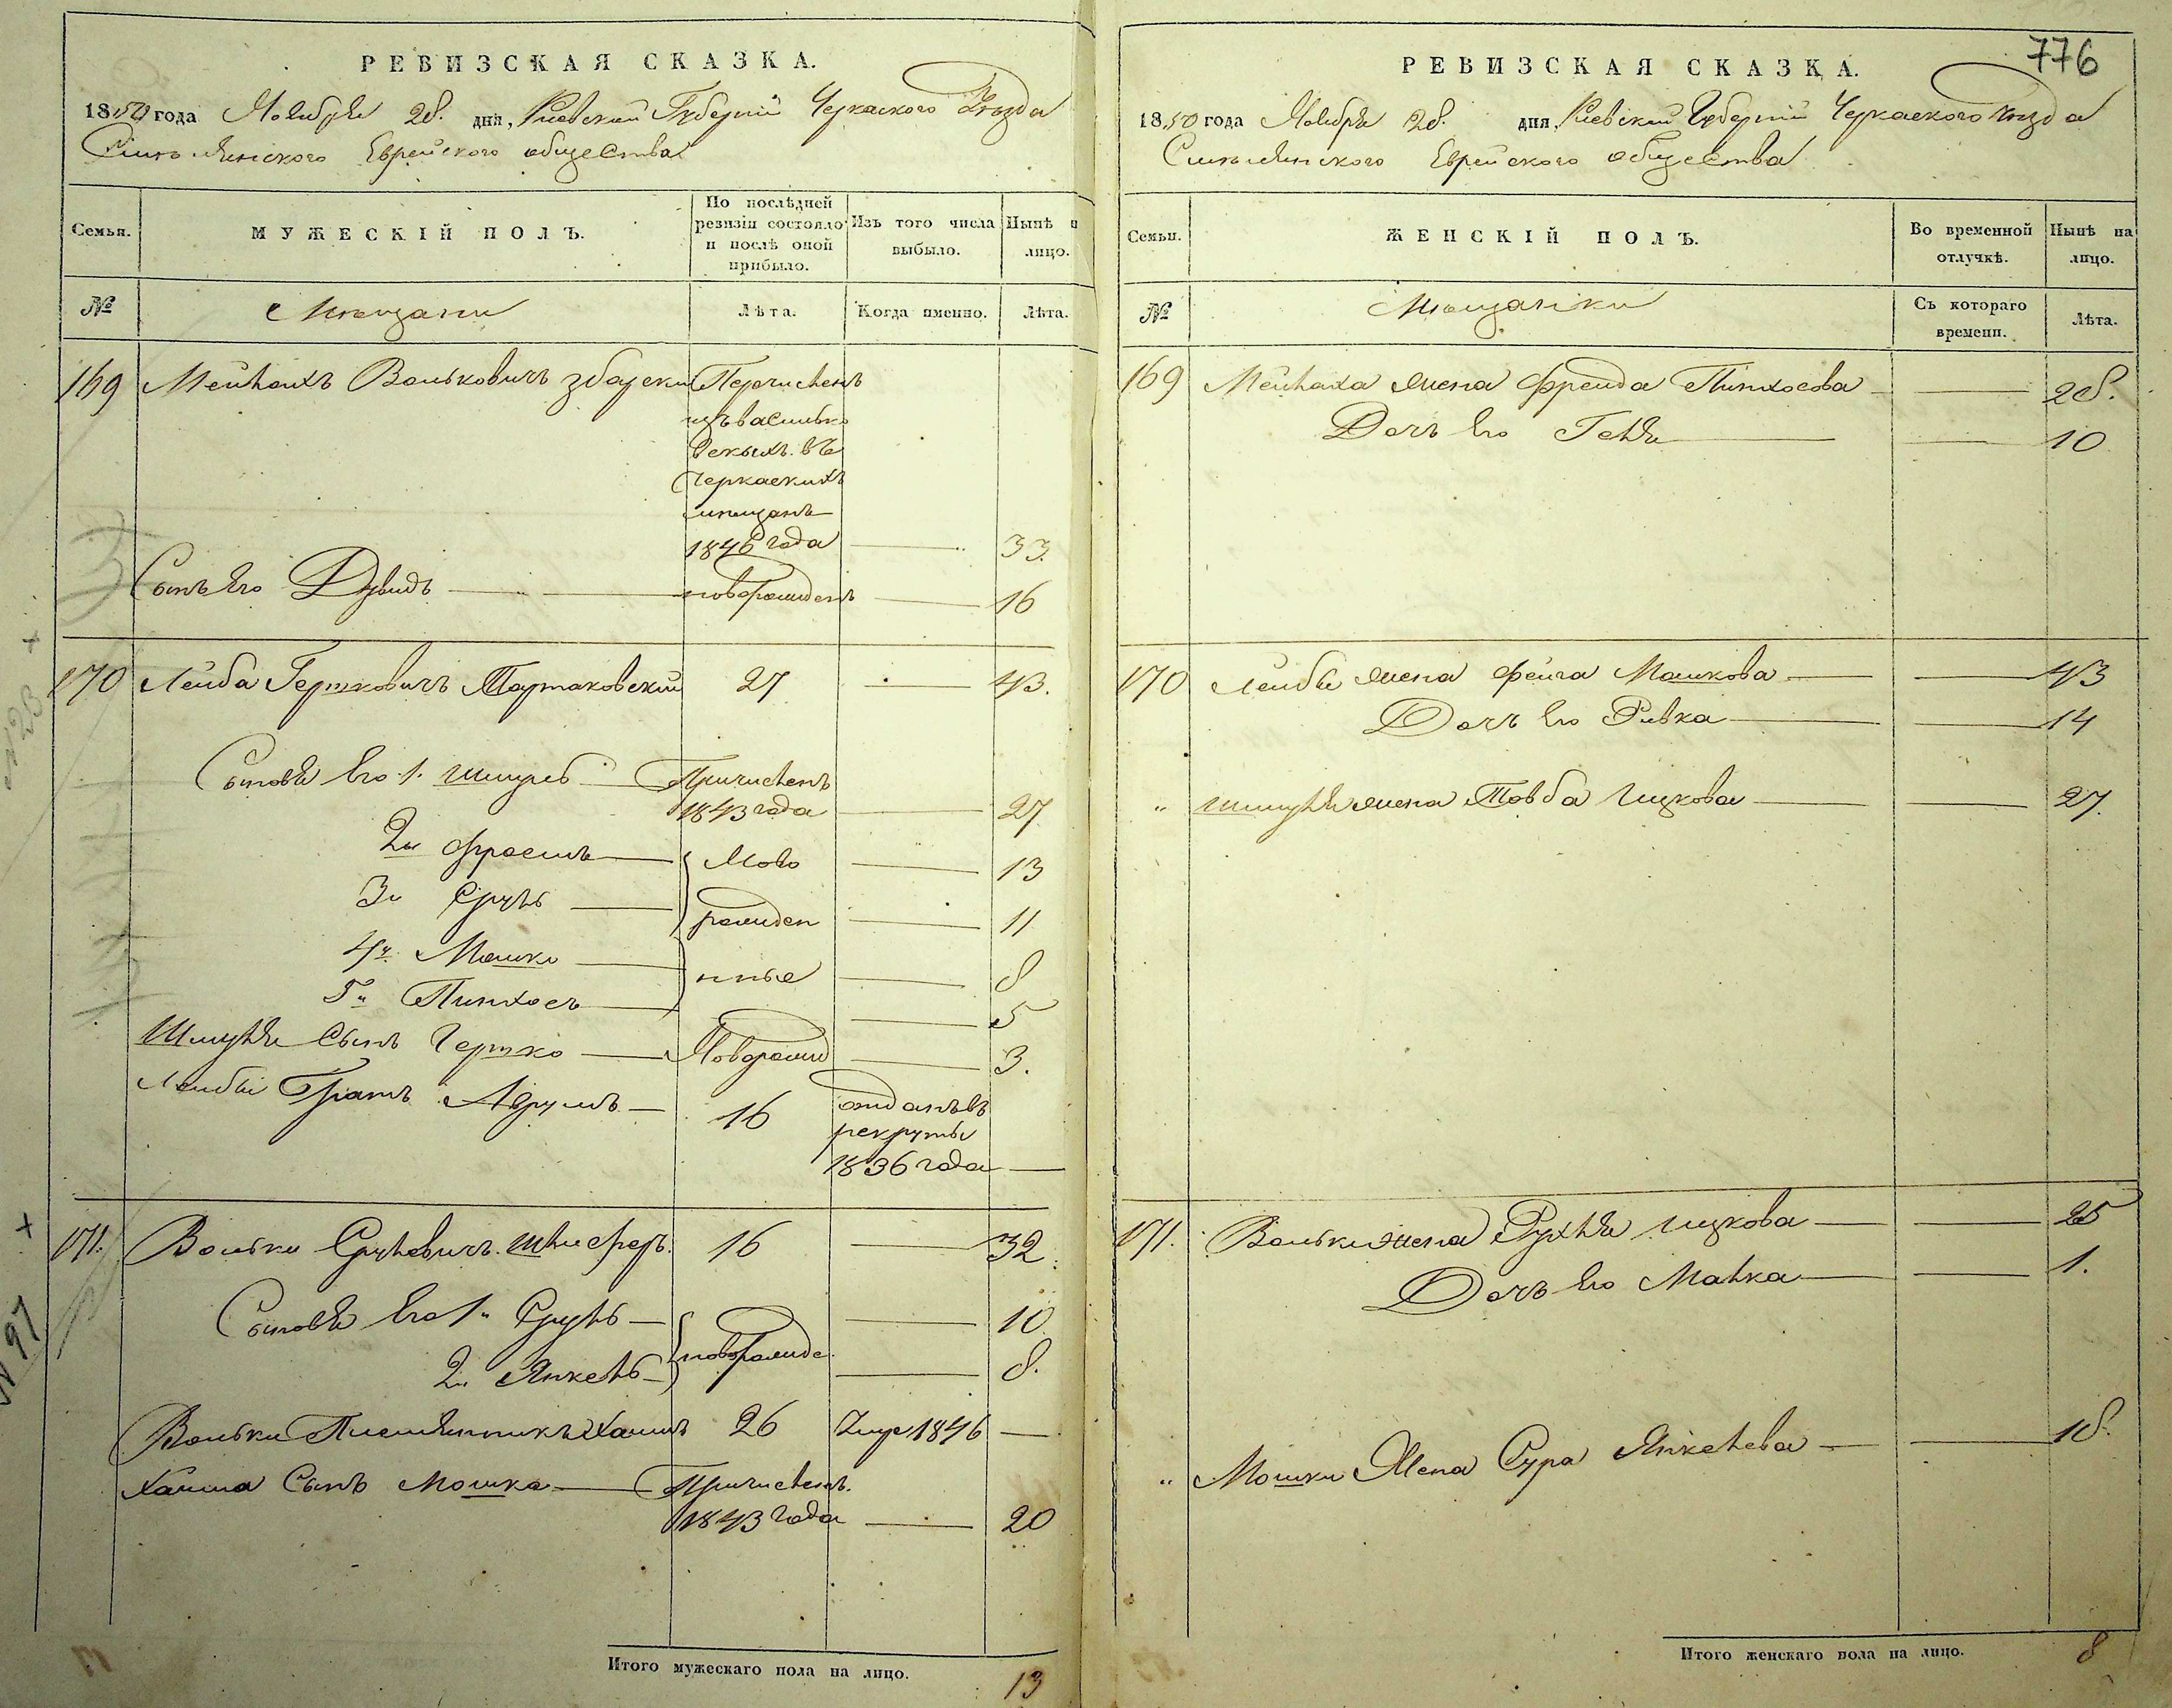 776
РЕВИЗСКАЯ СКАЗКА.
1850 года Ноября 28. дня, Киевской Губерніи Черкаского Уѣзда
Смѣлянского Еврейского общества
Семьи. МУЖЕСКІЙ ПОЛЪ. По послѣдней ревизіи состояло и послѣ оной прибыло. Изъ того числа выбыло. Нынѣ н лицо.
№ Мещани Лѣта. Когда именно. Лѣта.
169 Мейлахъ Вольковичъ Збарски Перечисленъ
изъ василько
вскихъ въ
Черкаскихъ
мещанъ
1846 года 33.
Сынъ Его Дувидъ новорожденъ 16
170 Лейба Гершковичъ Тартаковский 27 43.
Сыновя Его 1. Шмуль Причисленъ
1843 года 27
2й Фроемъ Ново 13
3й Сруль рожден 11
4й Мошко ные 8
5й Пинхосъ 5
Шмуля Сынъ Гершко Новорожд 3.
Лейбы Братъ Аврумъ 16 отданъ въ
рекруты
1836 года
171. Вольки Срулевичъ Шлиферъ. 16 32.
Сыновя Его 1й Сруль новорожде. 10
2й Янкель 8.
Вольки Племянникъ Хаимъ 26 Умре 1846
Хаима Сынъ Мошка Причисленъ.
1843 года 20
Итого мужескаго пола на лицо. 13
РЕВИЗСКАЯ СКАЗКА.
1850 года Ноября 28. дня, Киевской Губерніи Черкаского Уѣзда
Смѣлянского Еврейского общества
Семьи. ЖЕНСКІЙ ПОЛЪ. Во временной отлучкѣ. Нынѣ на лицо.
№ Мещанки Съ котораго времени. Лѣта.
169 Мейлаха жена Фрейда Пинхосова 28.
Дочъ Его Геня 10
170 Лейбы жена Фейга Мошкова 43
Дочъ Его Ривка 14
" Шмуля жена Товба Ицкова 27.
171. Вольки жена Рухля Ицкова 25
Дочъ Его Малка 1.
" Мошки Жена Сура Янкелева 18.
Итого женскаго пола на лицо. 8
N 97